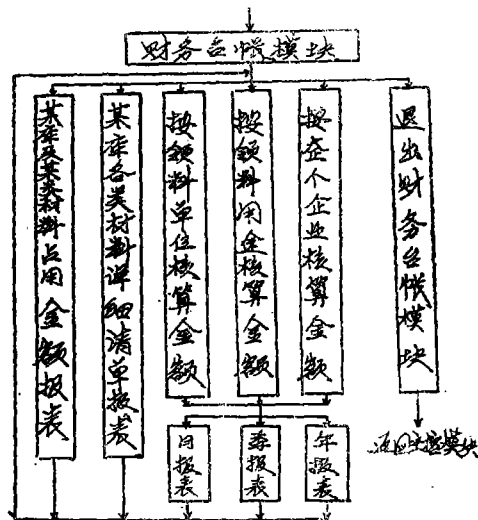 财务台帐模块
某库及某类材料占用金额报表
某库各类材料详细清单报表
按领料单位核算金额
按领料用途核算金额
按整个企业核算金额
退出财务台帐模块
日报表
季报表
年报表
返回主控模块